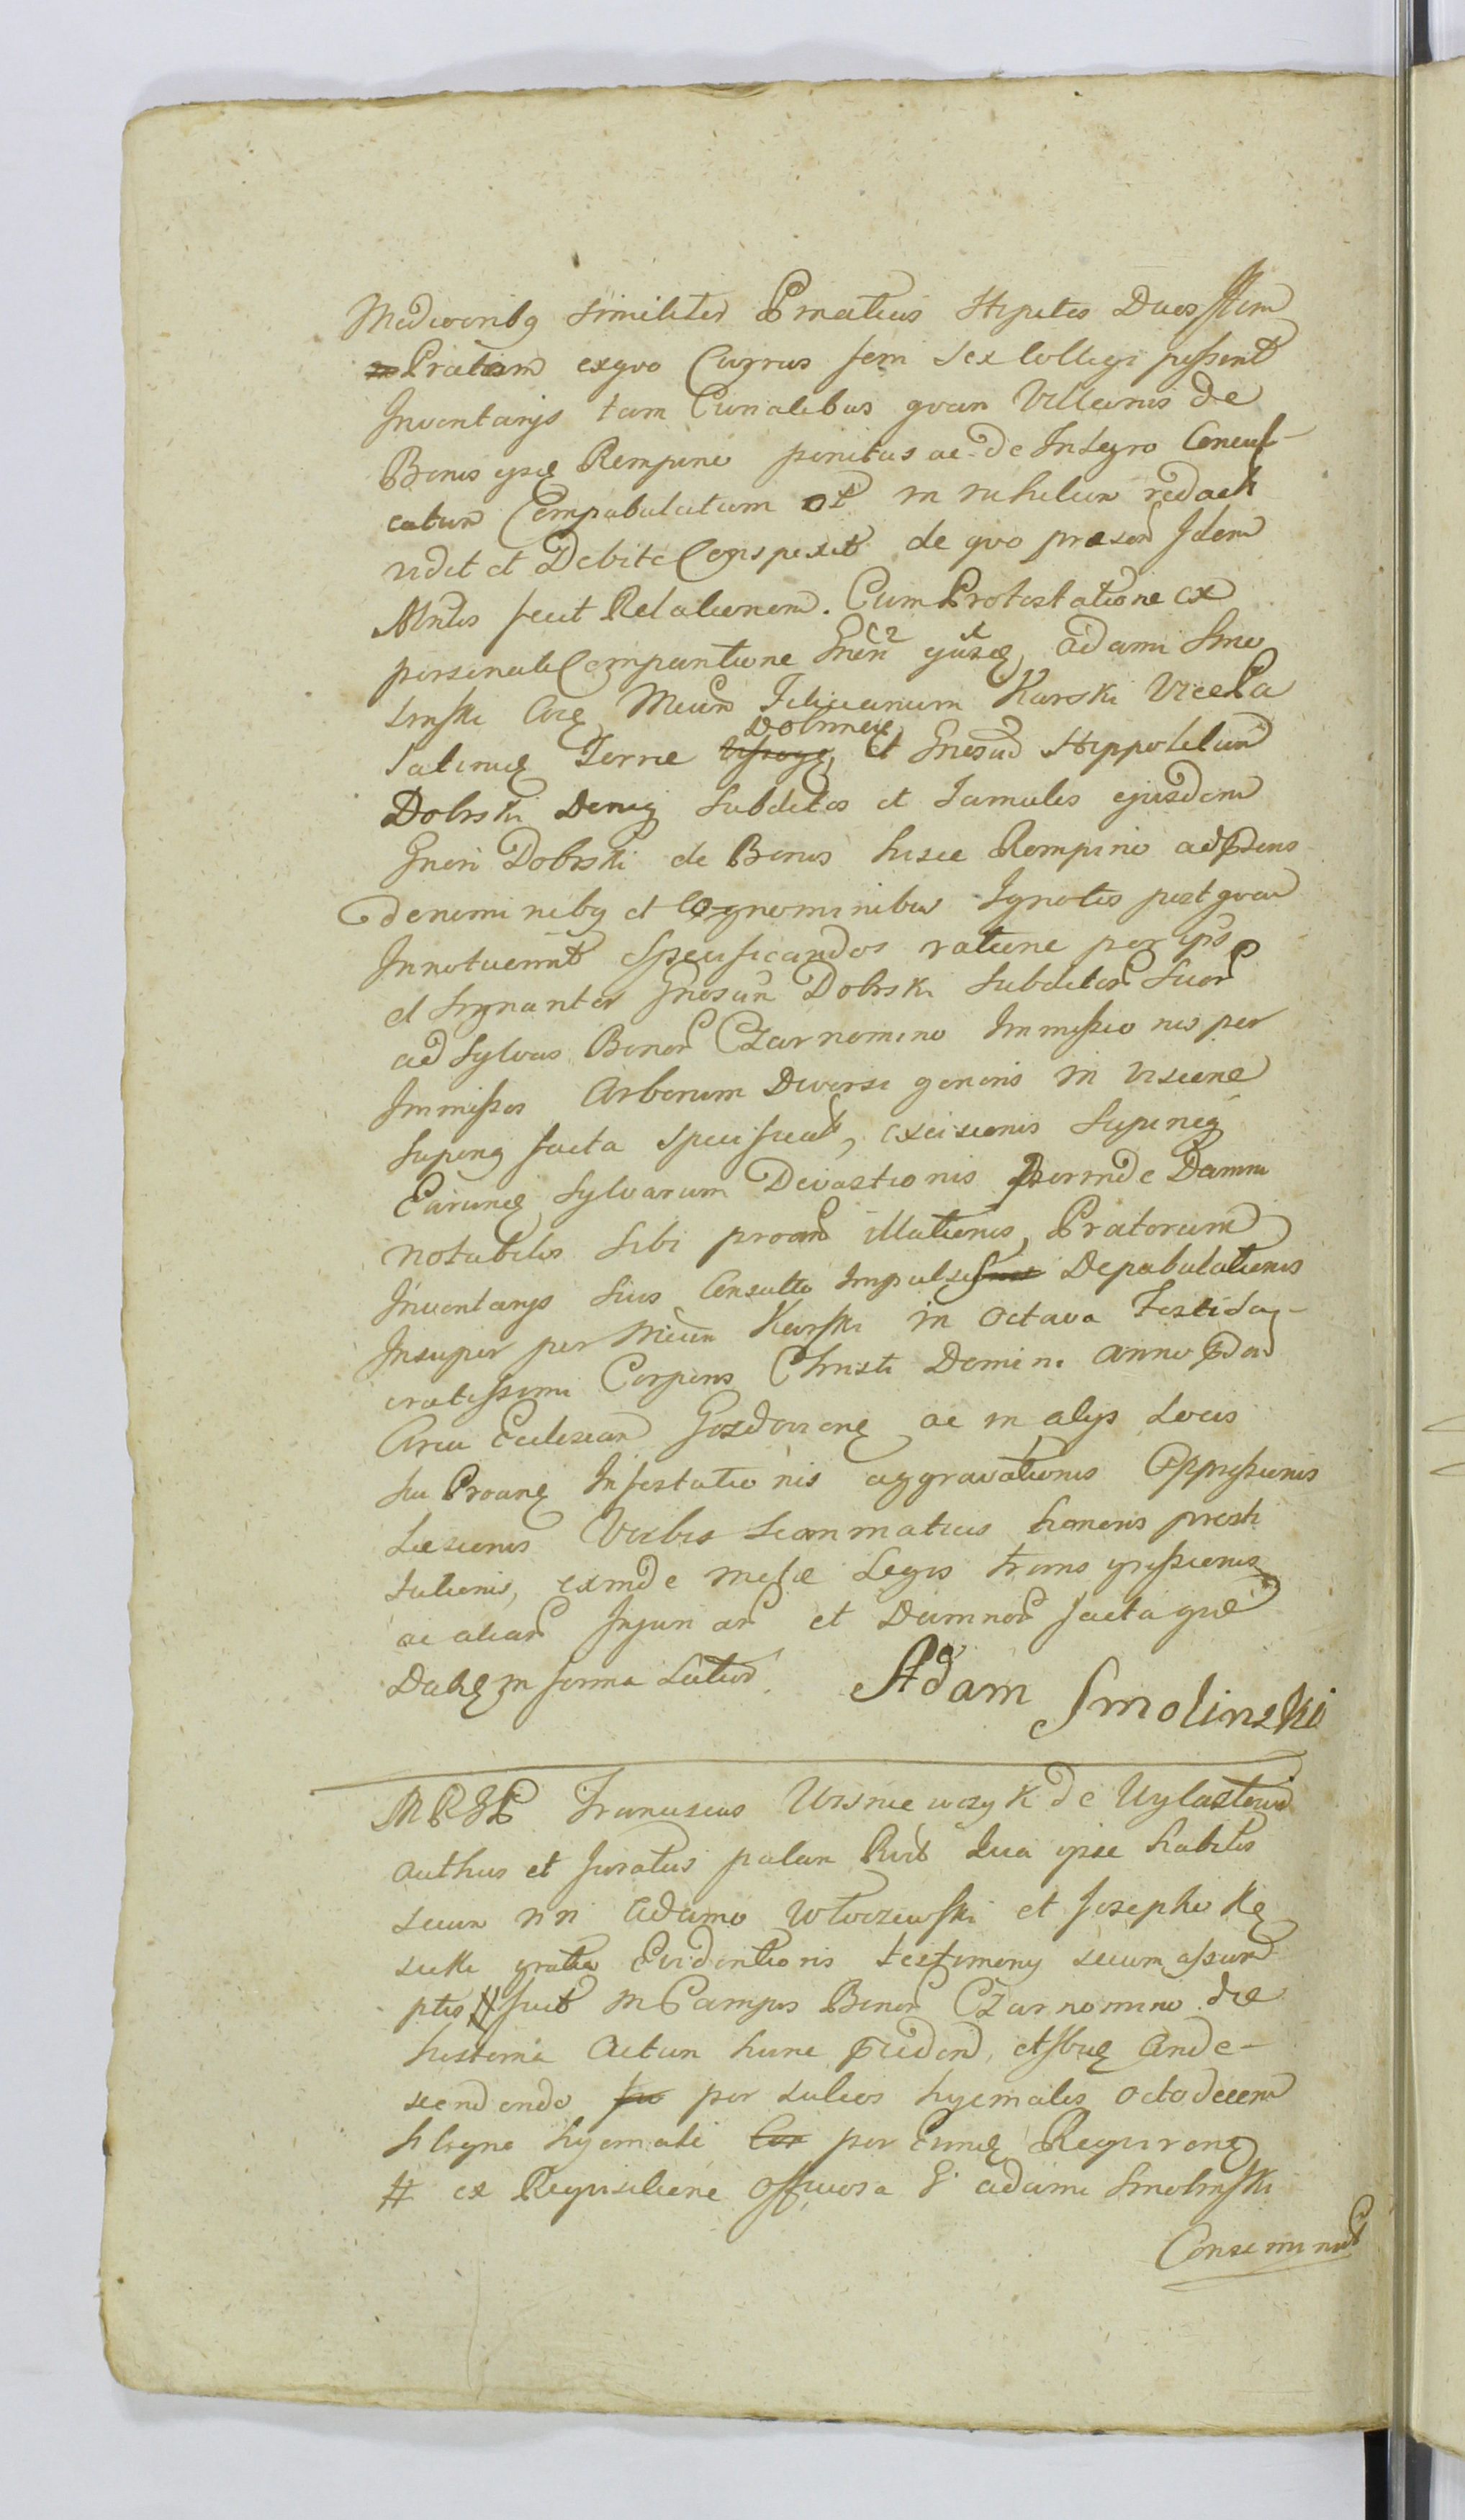 Mediocribg similiter Pineticas Stipites Duos Item
Pratum exquo Currus feni sex Collegi possent
Inventarijs tam Curialibus quam Villanis de
Bonis ijsdę Rempino penitus ac de Integro Concul-
catum Compabulatum et in nihilum redacti
vidit et Debite Conspexit de quo præsen Idem
Mntlis fecit Relationem. Cum Protestatione ex
personali Comparitione Gnen ejusdę Adami Smo
linski Crę Mcum Felicianum Karski VicePa
latinuę Terræ Dobrinen et Gnosum Hippolitum
Dobrski Deniq Subditos et Famulos ejusdem
Gnosi Dobrski de Bonis hisce Rempino adpsens
denominibg et Cognominibus Ignotos postquam
Innotuerint Specificandos ratione per ipos
et Signanter Gnosum Dobrski Subditor Suor
ad Sylvas Bonor Czarnomino Immissionis per
Immissos Arborum Diversi generis in visione
superiq facta specificat, excisionis Superneq
Earumq Sylvarum Devastionis perinde Damni
notabilis Sibi proan illationis, Pratorum
Inventarijs suis Consulto Impulsis Depabulationis
Insuper per Mcum Karski in Octava Festi Sa-
cratissimi Corporis Christi Domini Anno pdo
Circa Ecclesiam Gozdoviene ac in alijs Locis
sui Proanę Infestationis aggravationis Oppressionis
Læsionis Verbis Scommaticis honoris prosti
tutionis, exinde mesæ Legis transgressionis
ac aliar Injuriar et Damnor factaque
Dahę in forma Latior. Adam Smolinski
MRGP Franciscus Wisniewczyk de Wylazlowo
authus et Juratus palam Rcit Quia ipse habitis
secum nn Adamo Wloczewski et Josepho Kę
sicki gratia Evidentioris testimony secum assum
ptis # fuit in Campis Bonor Czarnomino die
hesterna Actum hunc pcedend, et ibuę Conde-
scendendo per sulcos hyemales octodecem
siligine hyemali per Eumdę Requirenę
# ex Requisitione officiosa G. Adami Smolinski
Conseminat